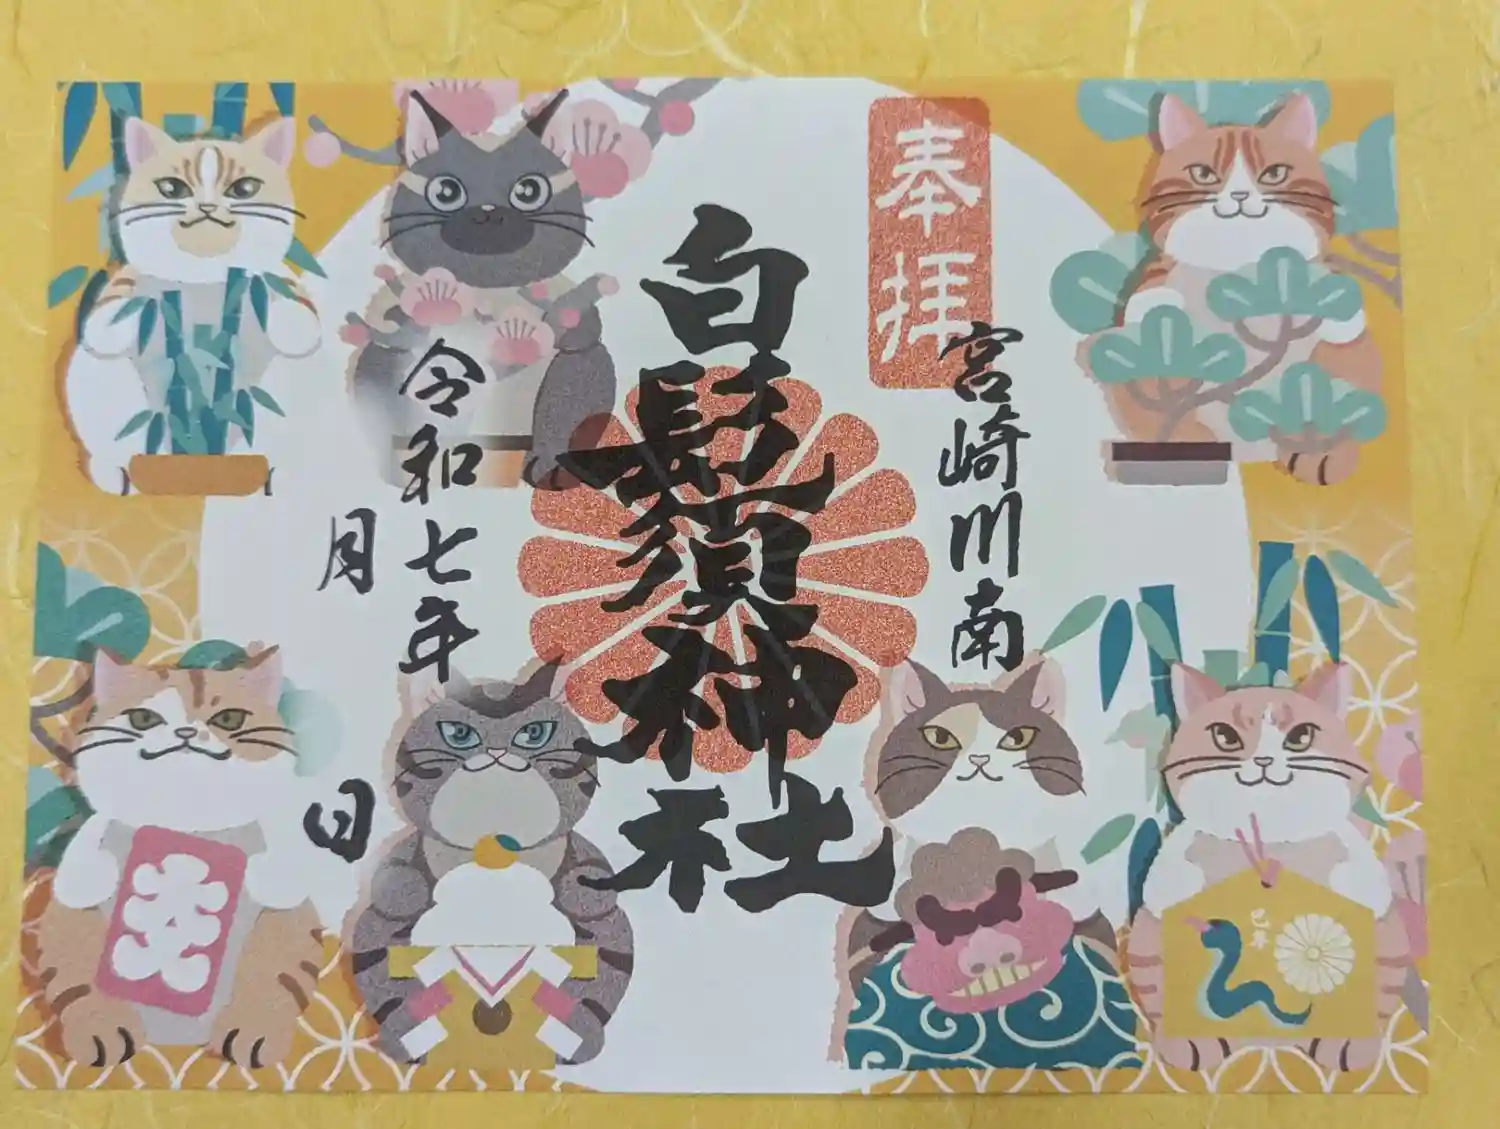 奉拝
宮崎川南
白髭須神社
令和七年
月
日
巳年